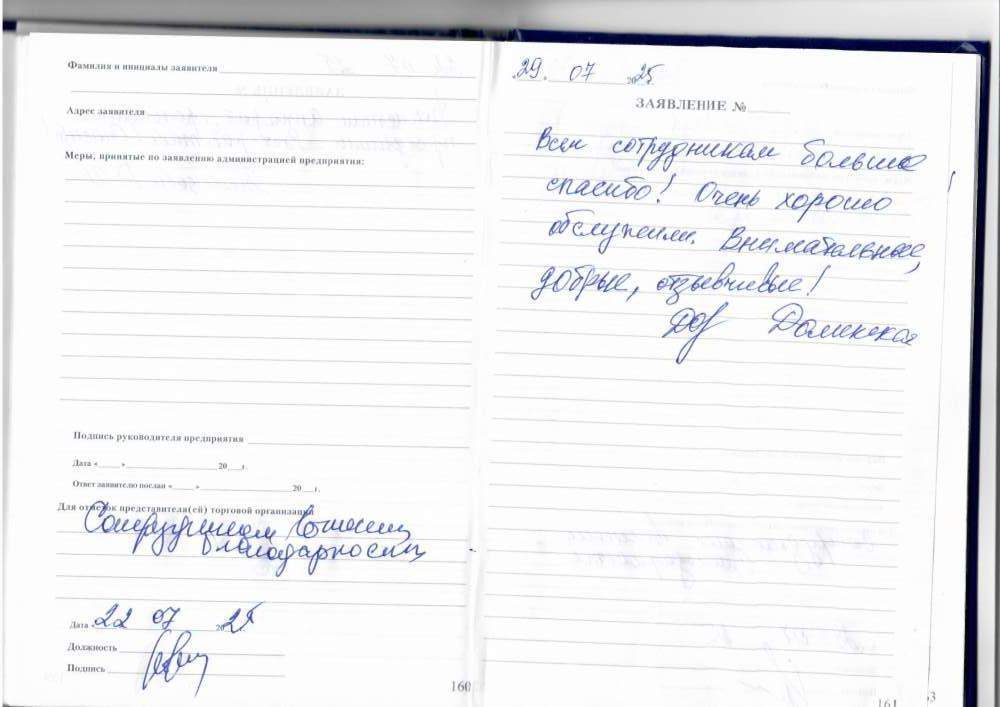 Фамилия и инициалы заявителя
Адрес заявителя
Меры, принятые по заявлению администрацией предприятия:
Подпись руководителя предприятия
Дата «____» 20__г.
Ответ заявителю послан «____» 20__г.
Для отметок представителя(ей) торговой организации
Сотрудникам
благодарность
Дата 22 07 2025
Должность
Подпись
160
29. 07 2025
ЗАЯВЛЕНИЕ №
Всем сотрудникам большое
спасибо! Очень хорошо
обслужили. Внимательные,
добрые, отзывчивые!
161